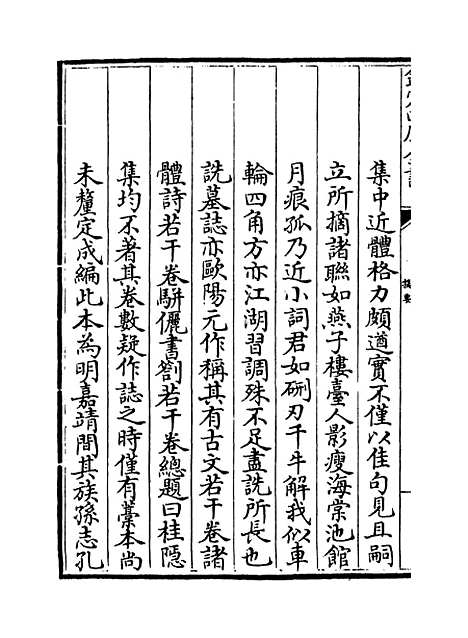 欽定四庫全書
提要
集中近體格力頗遒實不僅以佳句見且嗣
立所摘諸聯如燕子樓臺人影瘦海棠池館
月痕孤乃近小詞君如硎刃千牛解我似車
輪四角方亦江湖習調殊不足盡詵所長也
詵墓誌亦歐陽元作稱其有古文若干卷諸
體詩若干卷駢儷書劄若干卷總題曰桂隱
集均不著其卷數疑作誌之時僅有藁本尚
未釐定成編此本為明嘉靖間其族孫志孔